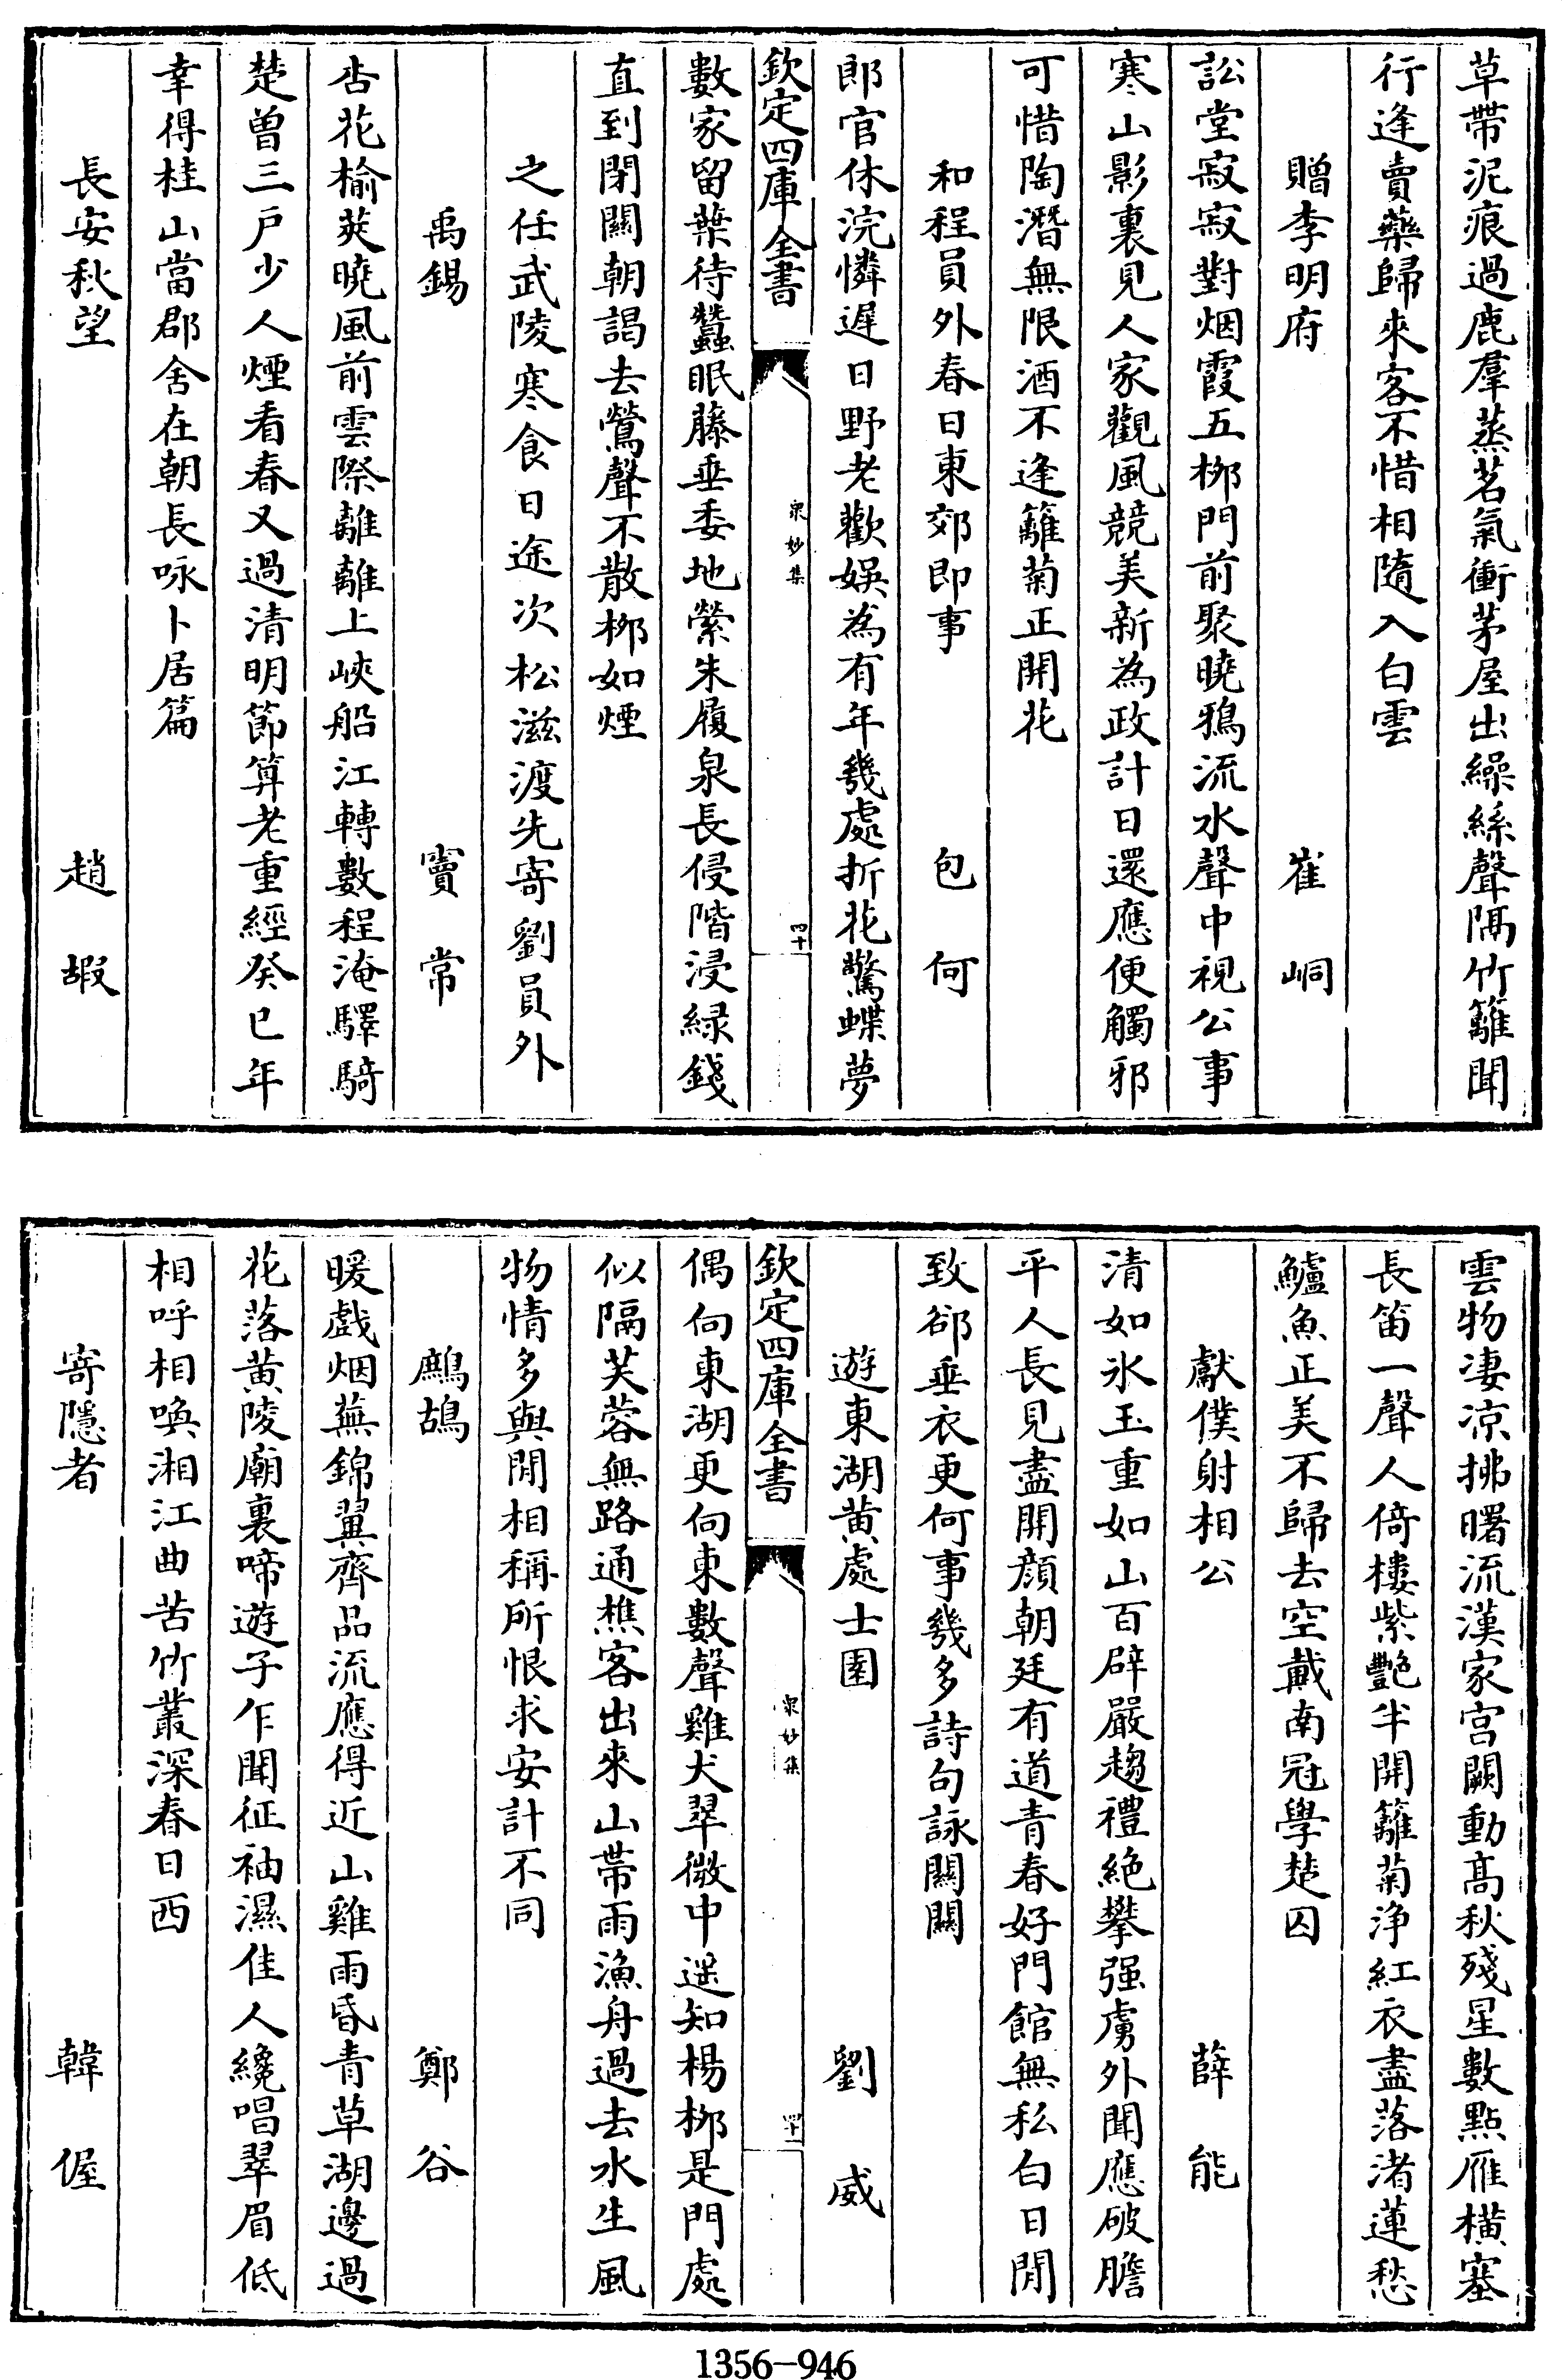 草帶泥痕過鹿羣蒸茗氣衝茅屋出繰絲聲隔竹籬聞
行逢賣藥歸來客不惜相隨入白雲
贈李明府 崔峒
訟堂寂寂對烟霞五栁門前聚曉鴉流水聲中視公事
寒山影裏見人家觀風競美新為政計日還應便觸邪
可惜陶潛無限酒不逢籬菊正開花
和程員外春日東郊即事 包何
郎官休浣憐遲日野老歡娱為有年幾處折花驚蝶夢
欽定四庫全書 衆妙集 四十
數家留葉待蠶眠藤垂委地縈朱履泉長侵階浸緑錢
直到閉關朝謁去鶯聲不散栁如煙
之任武陵寒食日途次松滋渡先寄劉員外
禹錫 竇常
杏花榆莢曉風前雲際離離上峽船江轉數程淹驛騎
楚曽三戶少人煙看春又過清明節算老重經癸巳年
幸得桂山當郡舍在朝長咏卜居篇
長安秋望 趙嘏
雲物凄凉拂曙流漢家宫闕動髙秋殘星數點雁横塞
長笛一聲人倚樓紫艷半開籬菊浄紅衣盡落渚蓮愁
鱸魚正美不歸去空戴南冠學楚囚
獻僕射相公 薛能
清如氷玉重如山百辟嚴趨禮絶攀强虜外聞應破膽
平人長見盡開顔朝廷有道青春好門館無私白日閒
致郤垂衣更何事幾多詩句詠關關
遊東湖黄處士園 劉威
欽定四庫全書 衆妙集 四十一
偶向東湖更向東數聲雞犬翠微中遥知楊栁是門處
似隔芙蓉無路通樵客出來山帶雨漁舟過去水生風
物情多與閒相稱所恨求安計不同
鷓鴣 鄭谷
暖戲烟蕪錦翼齊品流應得近山雞雨昏青草湖邊過
花落黄陵廟裏啼遊子乍聞征袖濕佳人纔唱翠眉低
相呼相喚湘江曲苦竹叢深春日西
寄隱者 韓偓
1356-946